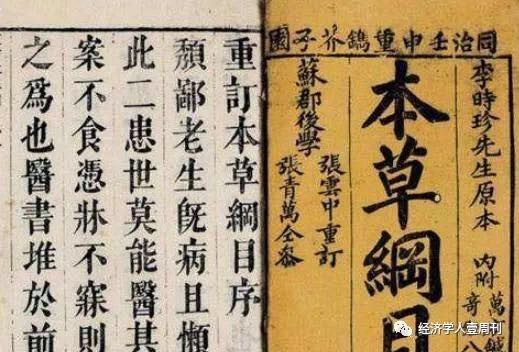 同治壬申重鐫芥子園
李時珍先生原本
内附
萬
奇八
本草綱目
蘇郡後學
張雲中重訂
張青萬仝參
重訂本草綱目序
頽鄙老生既病且懶
此二患世莫能醫其
案不食憑牀不寐則
之爲也醫書堆於前
经济学人壹周刊